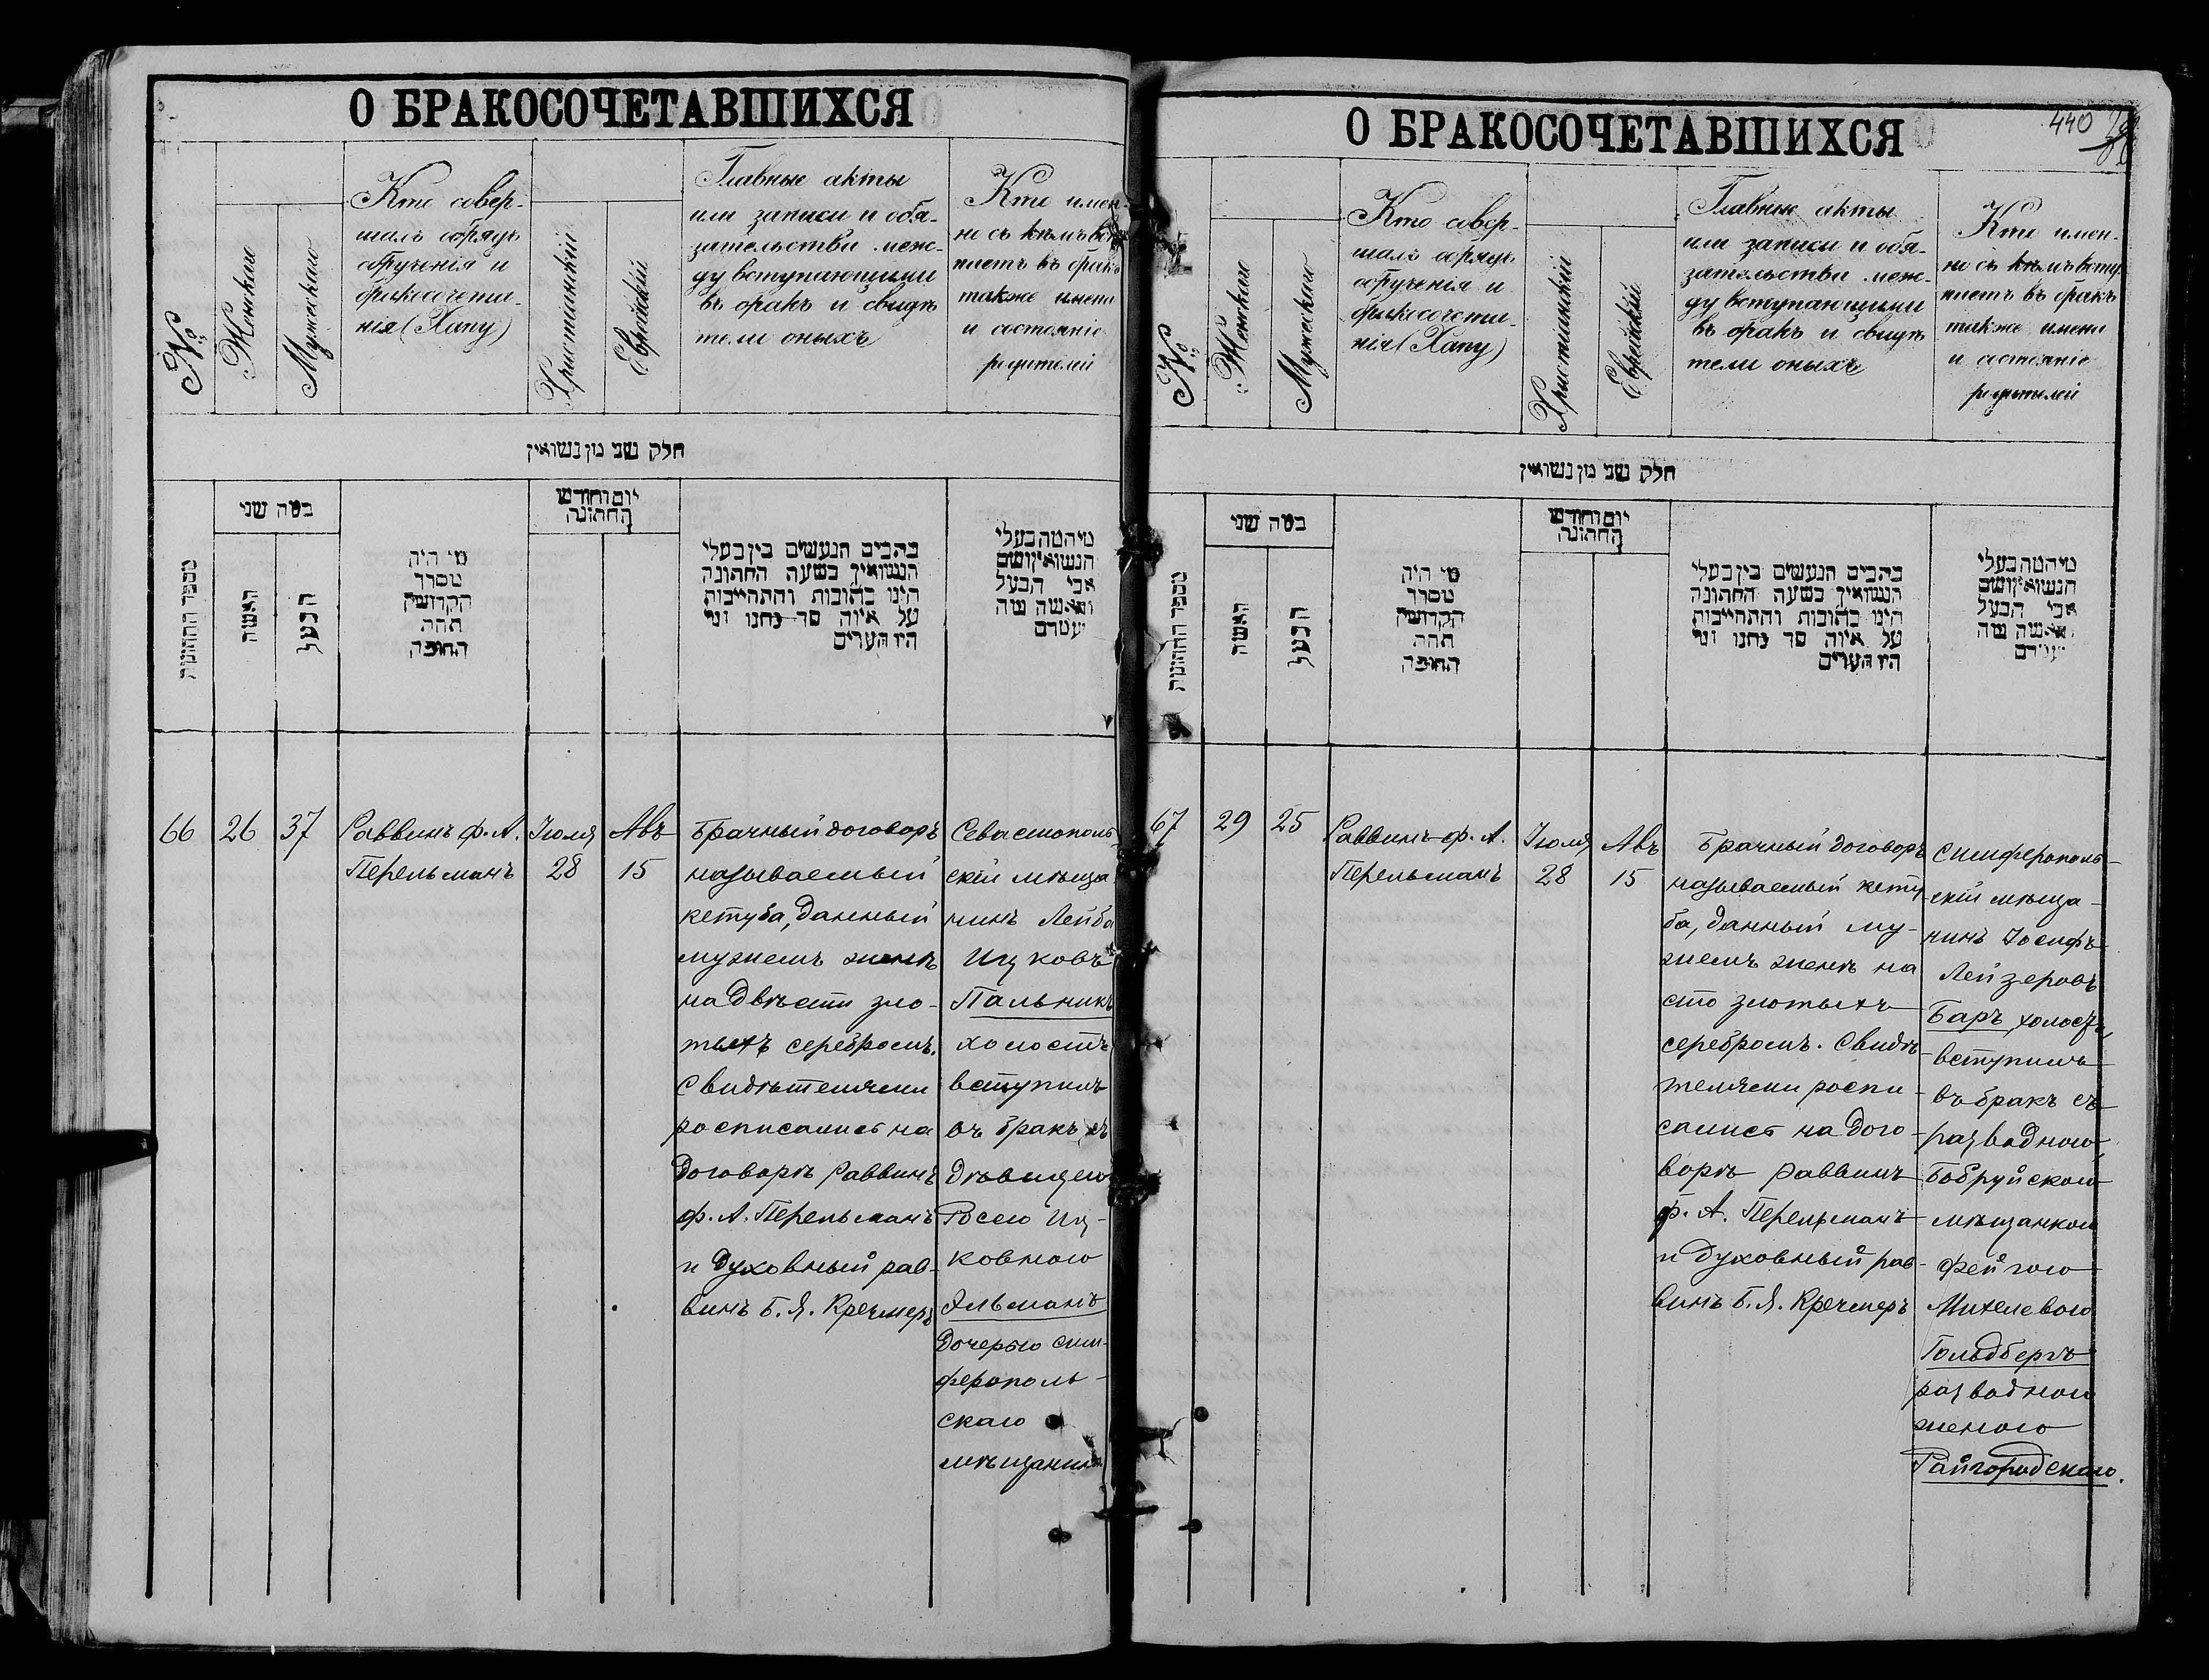 О БРАКОСОЧЕТАВШИХСЯ
№
Женскаго
Мужескаго
Кто совер-
шалъ обрядъ
обрученія и
бракосочета-
нія (Хапу)
Христіанскій
Еврейскій
Главные акты
или записи и обя-
зательства меж-
ду вступающими
въ бракъ и свидѣ
тели оныхъ
Кто имен-
но съ кѣмъ всту
паетъ въ бракъ
также имена
и состояніе
родителей
חלק שני מן נשואין
מספר החתונות
במה שני
האשה
הבעל
מי היה
מסדר
הקדושין
תחת
החופה
יום וחודש
החתונה
כתבים הנעשים בין בעלי
הנשואין בשעת החתונה
היינו כתובות והתחייבות
על איזה סך נתנו ומי
היו העדים
מי המה בעלי
הנשואין ושם
אבי הבעל
והאשה מה
מעמדם
66
26
37
Раввинъ Ф. А.
Перельманъ
Іюля
28
Авъ
15
Брачный договоръ
называемый
кетуба, данный
мужемъ женѣ
на двѣсти зло-
тыхъ серебромъ.
Свидѣтелями
росписались на
договорѣ раввинъ
Ф. А. Перельманъ
и духовный рав-
винъ Б. Я. Кречмеръ
Севастополь-
скій мѣща-
нинъ Лейба
Ицковъ
Пальникъ
холостъ
вступилъ
въ бракъ съ
дѣвицею
Росею Иц-
ковною
Эльманъ
дочерью сим-
ферополь-
скаго
мѣщанина
О БРАКОСОЧЕТАВШИХСЯ
440
№
Женскаго
Мужескаго
Кто совер-
шалъ обрядъ
обрученія и
бракосочета-
нія (Хапу)
Христіанскій
Еврейскій
Главные акты
или записи и обя-
зательства меж-
ду вступающими
въ бракъ и свидѣ
тели оныхъ
Кто имен-
но съ кѣмъ всту
паетъ въ бракъ
также имена
и состояніе
родителей
חלק שני מן נשואין
מספר החתונות
במה שני
האשה
הבעל
מי היה
מסדר
הקדושין
תחת
החופה
יום וחודש
החתונה
כתבים הנעשים בין בעלי
הנשואין בשעת החתונה
היינו כתובות והתחייבות
על איזה סך נתנו ומי
היו העדים
מי המה בעלי
הנשואין ושם
אבי הבעל
והאשה מה
מעמדם
67
29
25
Раввинъ Ф. А.
Перельманъ
Іюля
28
Авъ
15
Брачный договоръ
называемый кету
ба, данный му-
жемъ женѣ на
сто злотыхъ
серебромъ. Свидѣ-
телями роспи-
сались на дого-
ворѣ раввинъ
Ф. А. Перельманъ
и духовный рав-
винъ Б. Я. Кречмеръ
Симферополь-
скій мѣща-
нинъ Іосифъ
Лейзеровъ
Баръ, холостъ,
вступилъ
въ бракъ съ
разводною
Бобруйскою
мѣщанкою
Фейгою
Михелевою
Гольдбергъ
разводною
женою
Райгородскаго.